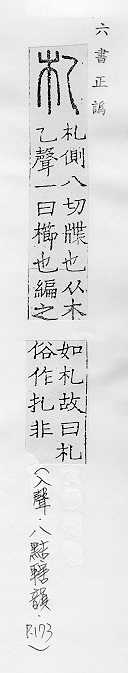 六書正譌
札
札側八切牒也从木
乙聲一曰櫛也編之
如札故曰札
俗作扎非
(入聲.八點轄韻.P.173)